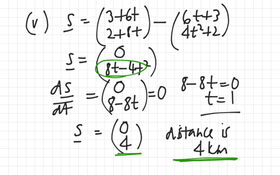 (v) S = (3+6t 2+8t) − (6t+3 4t²+2)
S = (0 8t−4t²)
dS/dt = (0 8−8t) = 0 8−8t=0
t=1
S = (0 4) distance is
4 km